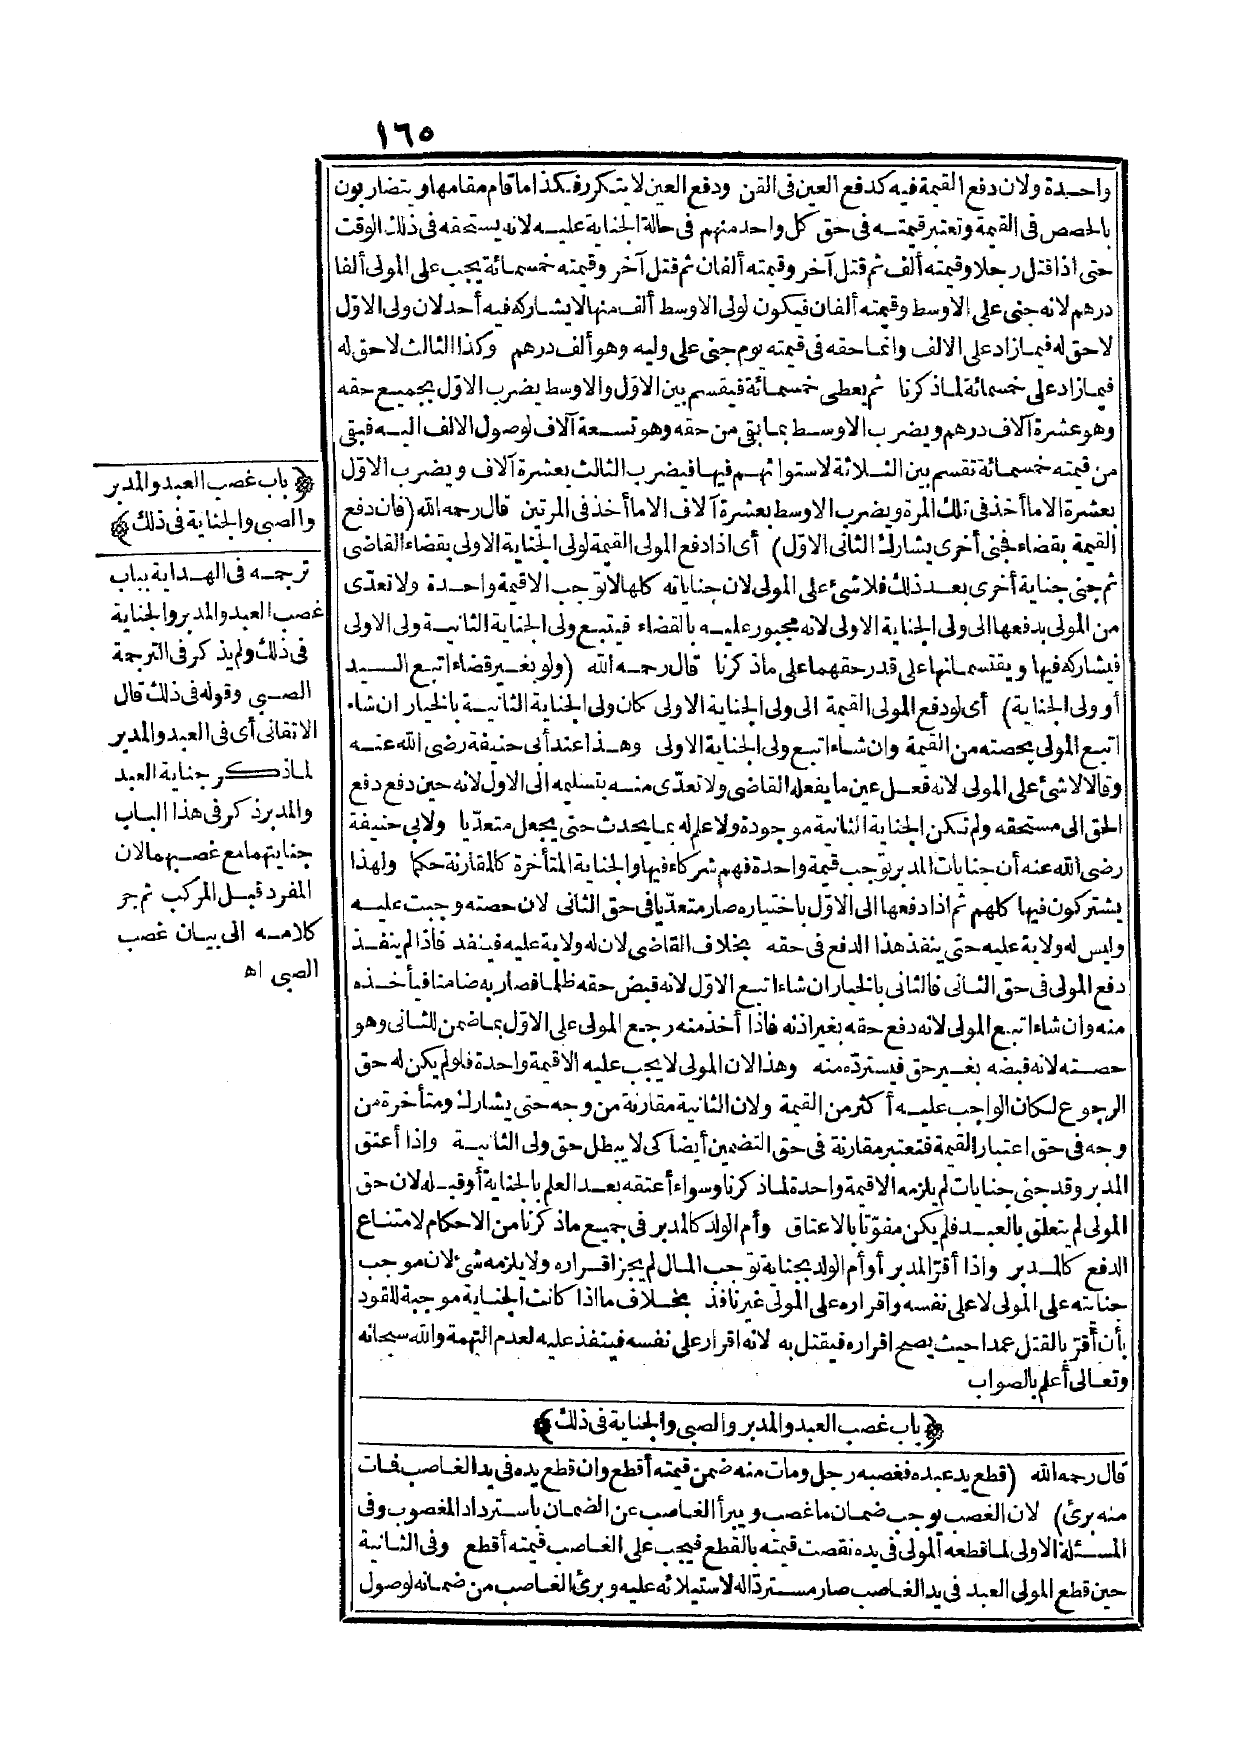 ١٦٥
واحدة ولان دفع القيمة فيه كدفع العين فى القن ودفع العين لا يتكرر فكذا ما قام مقامها ويتضاربون
بالحصص فى القيمة وتعتبر قيمته فى حق كل واحد منهم فى حالة الجناية عليه لانه يستحقه فى ذلك الوقت
حتى اذا قتل رجلا وقيمته ألف ثم قتل آخر وقيمته ألفان ثم قتل آخر وقيمته خمسمائة يجب على المولى ألفا
درهم لانه جنى على الاوسط وقيمته ألفان فيكون لولى الاوسط ألف منها لا يشاركه فيه أحد لان ولى الاوّل
لا حق له فيما زاد على الالف وانما حقه فى قيمته يوم جنى على وليه وهو ألف درهم وكذا الثالث لا حق له
فيما زاد على خمسمائة لما ذكرنا ثم يعطى خمسمائة فيقسم بين الاوّل والاوسط يضرب الاوّل بجميع حقه
وهو عشرة آلاف درهم ويضرب الاوسط بما بقى من حقه وهو تسعة آلاف لوصول الالف اليه فيبقى
من قيمته خمسمائة تقسم بين الثلاثة لاستوائهم فيها فيضرب الثالث بعشرة آلاف ويضرب الاوّل
بعشرة الا ما أخذ فى تلك المرة ويضرب الاوسط بعشرة آلاف الا ما أخذ فى المرتين قال رحمه الله (فان دفع
القيمة بقضاء فجنى أخرى يشارك الثانى الاوّل) أى اذا دفع المولى القيمة لولى الجناية الاولى بقضاء القاضى
ثم جنى جناية أخرى بعد ذلك فلا شئ على المولى لان جناياته كلها لا توجب الا قيمة واحدة ولا تعدّى
من المولى بدفعها الى ولى الجناية الاولى لانه مجبور عليه بالقضاء فيتبع ولى الجناية الثانية ولى الاولى
فيشاركه فيها ويقتسمانها على قدر حقهما على ما ذكرنا قال رحمه الله (ولو بغير قضاء اتبع السيد
أو ولى الجناية) أى لو دفع المولى القيمة الى ولى الجناية الاولى كان ولى الجناية الثانية بالخيار ان شاء
اتبع المولى بحصته من القيمة وان شاء اتبع ولى الجناية الاولى وهذا عند أبى حنيفة رضى الله عنه
وقالا لا شئ على المولى لانه فعل عين ما يفعله القاضى ولا تعدّى منه بتسليمه الى الاول لانه حين دفع دفع
الحق الى مستحقه ولم تكن الجناية الثانية موجودة ولا علم له بما يحدث حتى يجعل متعدّيا ولابى حنيفة
رضى الله عنه أن جنايات المدبر توجب قيمة واحدة فهم شركاء فيها والجناية المتأخرة كالمقارنة حكما ولهذا
يشتركون فيها كلهم ثم اذا دفعها الى الاوّل باختياره صار متعدّيا فى حق الثانى لان حصته وجبت عليه
وليس له ولاية عليه حتى ينفذ هذا الدفع فى حقه بخلاف القاضى لان له ولاية عليه فينفذ فاذا لم ينفذ
دفع المولى فى حق الثانى فالثانى بالخيار ان شاء اتبع الاوّل لانه قبض حقه ظلما فصار به ضامنا فيأخذه
منه وان شاء اتبع المولى لانه دفع حقه بغير اذنه فاذا أخذ منه رجع المولى على الاوّل بما ضمن للثانى وهو
حصته لانه قبضه بغير حق فيستردّه منه وهذا لان المولى لا يجب عليه الا قيمة واحدة فلو لم يكن له حق
الرجوع لكان الواجب عليه أكثر من القيمة ولان الثانية مقارنة من وجه حتى يشارك ومتأخرة من
وجه فى حق اعتبار القيمة فتعتبر مقارنة فى حق التضمين أيضا كى لا يبطل حق ولى الثانية واذا أعتق
المدبر وقد جنى جنايات لم يلزمه الا قيمة واحدة لما ذكرنا وسواء أعتقه بعد العلم بالجناية أو قبله لان حق
المولى لم يتعلق بالعبد فلم يكن مفوّتا بالاعتاق وأم الولد كالمدبر فى جميع ما ذكرنا من الاحكام لامتناع
الدفع كالمدبر واذا أقرّ المدبر أو أم الولد بجناية توجب المال لم يجز اقراره ولا يلزمه شئ لان موجب
جنايته على المولى لا على نفسه واقراره على المولى غير نافذ بخلاف ما اذا كانت الجناية موجبة للقود
بأن أقرّ بالقتل عمدا حيث يصح اقراره فيقتل به لانه اقرار على نفسه فينفذ عليه لعدم التهمة والله سبحانه
وتعالى أعلم بالصواب
﴿باب غصب العبد والمدبر والصبى والجناية فى ذلك﴾
قال رحمه الله (قطع يد عبده فغصبه رجل ومات منه ضمن قيمته أقطع وان قطع يده فى يد الغاصب فمات
منه برئ) لان الغصب يوجب ضمان ما غصب ويبرأ الغاصب عن الضمان باسترداد المغصوب وفى
المسئلة الاولى لما قطعه المولى فى يده نقصت قيمته بالقطع فيجب على الغاصب قيمته أقطع وفى الثانية
حين قطع المولى العبد فى يد الغاصب صار مستردّا له لاستيلائه عليه وبرئ الغاصب من ضمانه لوصول
﴿باب غصب العبد والمدبر
والصبى والجناية فى ذلك﴾
ترجمه فى الهداية بباب
غصب العبد والمدبر والجناية
فى ذلك ولم يذكر فى الترجمة
الصبى وقوله فى ذلك قال
الاتقانى أى فى العبد والمدبر
لما ذكر جناية العبد
والمدبر ذكر فى هذا الباب
جنايتهما مع غصبهما لان
المفرد قبل المركب ثم جر
كلامه الى بيان غصب
الصبى اه